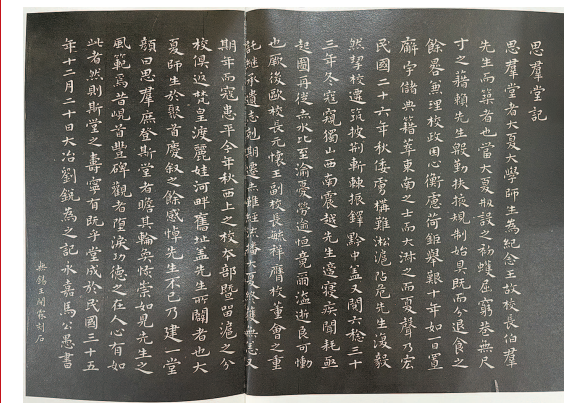 思羣堂記
思羣堂者大夏大學師生為紀念王故校長伯羣
先生而築者也當大夏刱設之初蠖屈窮巷無尺
寸之藉賴先生殷勤扶掖規制始具既而分退食之
餘晷兼理校政困心衡慮荷鉅舉艱十年如一日置
廨宇儲典籍萃東南之士而大淬之而夏聲乃宏
民國二十六年秋倭虜構難淞滬阽危先生復毅
然挈校遷筑披荆斬棘振鐸黔中蓋又閱六稔三十
三年冬寇窺獨山西南震越先生邊寢疾聞耗亟
起圖再徙赤水比至渝憂勞逾恒竟爾溘逝良可慟
也厥後歐校長元懷王副校長毓祥膺校董會之重
託繼承遺志
期年而寇患平今年秋西上之校本部暨留滬之分
校俱返梵皇渡麗娃河畔舊址蓋先生所闢者也大
夏師生於聚首慶敘之餘感悼先生不已乃建一堂
顏曰思羣庶登斯堂者瞻其輪奐恍崇如見先生之
風範焉昔峴首豐碑觀者墮淚功德之在人心有如
此者然則斯堂之壽寧有既乎堂成於民國三十五
年十二月二十日大冶劉銳為之記永嘉馬公愚書
無錫王開霖刻石